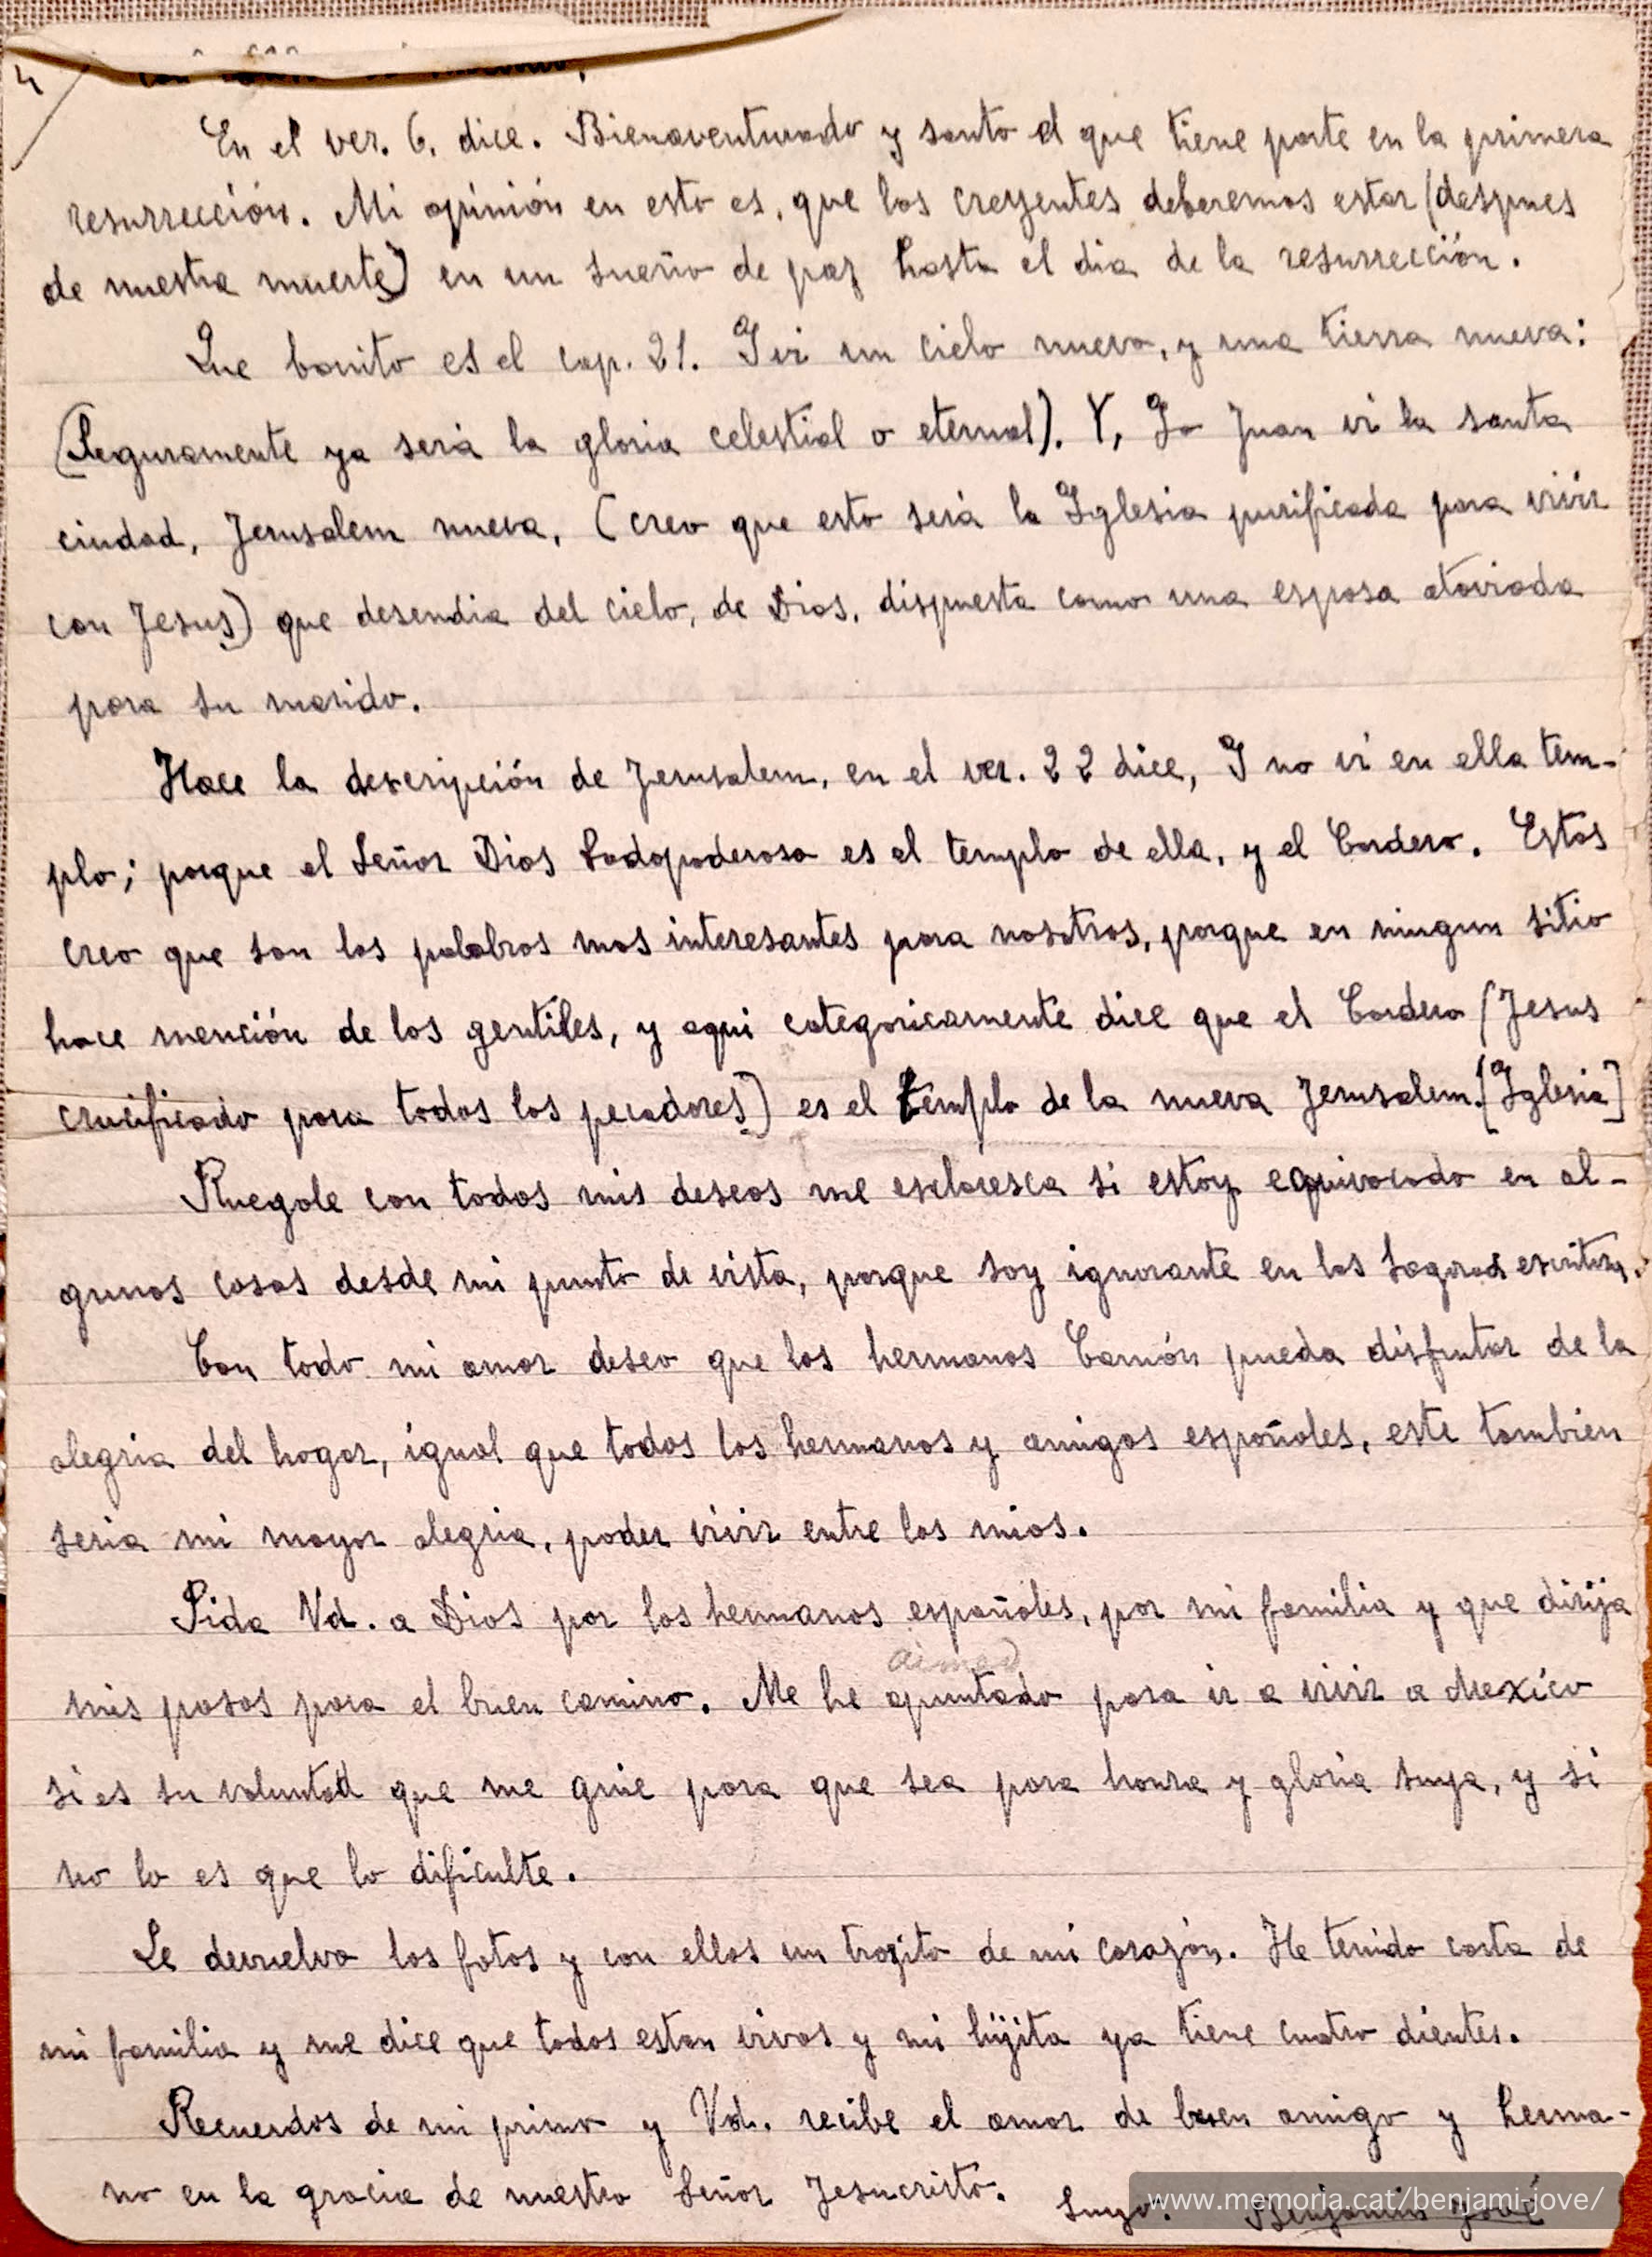 4
En el ver. 6. dice. Bienaventurado y santo el que tiene parte en la primera
resurrección. Mi opinión en esto es, que los creyentes deberemos estar (despues
de nuestra muerte) en un sueño de paz hasta el dia de la resurrección.
Que bonito es el cap. 21. I vi un cielo nuevo, y una tierra nueva:
(Seguramente ya será la gloria celestial o eternal). Y, Yo Juan vi la santa
ciudad, Jerusalem nueva, (creo que esto será la Iglesia purificada para vivir
con Jesus) que desendia del cielo, de Dios, dispuesta como una esposa ataviada
para su marido.
Hace la descripción de Jerusalem, en el ver. 22 dice, I no vi en ella tem-
plo; porque el Señor Dios todopoderoso es el templo de ella, y el Cordero. Estas
creo que son las palabras mas interesantes para nosotros, porque en ningun sitio
hace mención de los gentiles, y aqui categoricamente dice que el Cordero (Jesus
crucificado para todos los pecadores) es el templo de la nueva Jerusalem. [Iglesia]
Ruegole con todos mis deseos me esclaresca si estoy equivocado en al-
gunas cosas desde mi punto de vista, porque soy ignorante en las
Con todo mi amor deseo que los hermanos Camón pueda disfrutar de la
alegria del hogar, igual que todos los hermanos y amigos españoles, este tambien
seria mi mayor alegria, poder vivir entre los mios.
Pida Vd. a Dios por los hermanos españoles, por mi familia y que dirija
aimed
mis pasos para el buen camino. Me he apuntado para ir a vivir a Mexico
si es su voluntad que me guie para que sea para honra y gloria suya, y si
no lo es que lo dificulte.
Le devuelvo las fotos y con ellas un trozito de mi corazón. He tenido carta de
mi familia y me dice que todos estan vivos y mi hijita ya tiene cuatro dientes.
Recuerdos de mi primo y Vd. recibe el amor de buen amigo y herma-
no en la gracia de nuestro Señor Jesucristo. Suyo: Benjamin Jové
www.memoria.cat/benjami-jove/